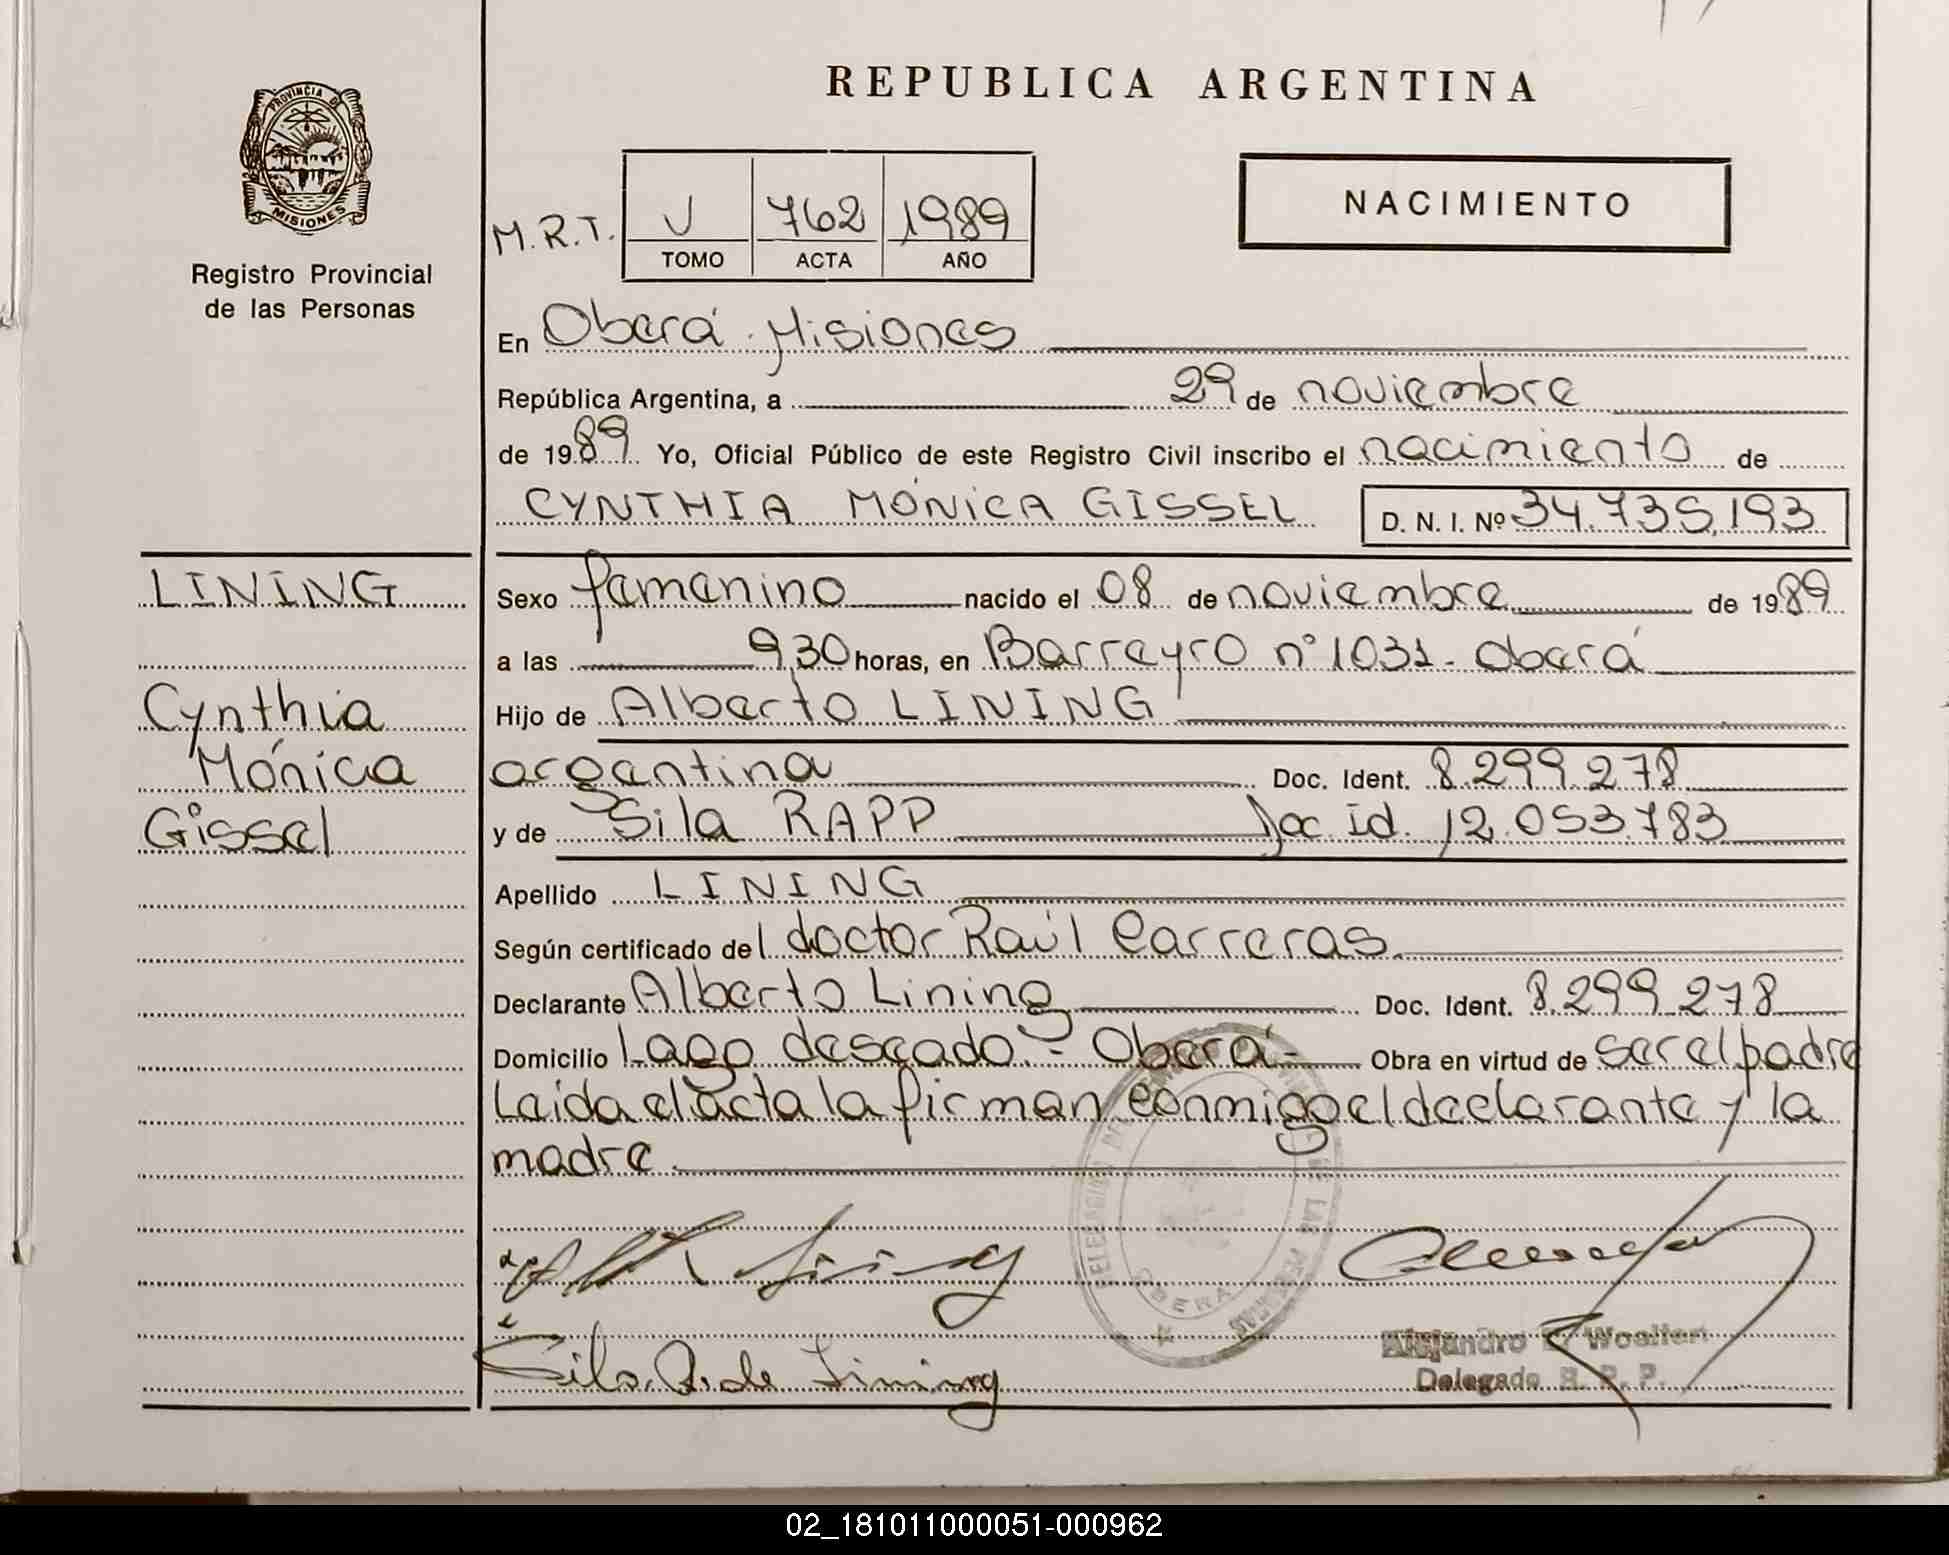 REPUBLICA ARGENTINA
PROVINCIA DE
MISIONES
Registro Provincial
de las Personas
NACIMIENTO
M.R.T. V 762 1989
TOMO ACTA AÑO
En Oberá - Misiones
República Argentina, a 29 de noviembre
de 1989 Yo, Oficial Público de este Registro Civil inscribo el nacimiento de
CYNTHIA MÓNICA GISSEL D. N. I. Nº 34.735.193
LINING
Cynthia
Mónica
Gissel
Sexo femenino nacido el 08 de noviembre de 1989
a las 9,30 horas, en Barreyro n° 1031 - Oberá
Hijo de Alberto LINING
argentina Doc. Ident. 8.299.278
y de Sila RAPP Doc. id. 12.053.783
Apellido LINING
Según certificado del doctor Raúl Carreras
Declarante Alberto Lining Doc. Ident. 8.299.278
Domicilio Lago deseado - Oberá - Obra en virtud de ser el padre
Leída el acta la firman conmigo el declarante y la
madre
Sila R. de Lining
DELEGACION DEL LAS PERSONAS
OBERA
Alejandro
Delegado R. P. P.
02_181011000051-000962